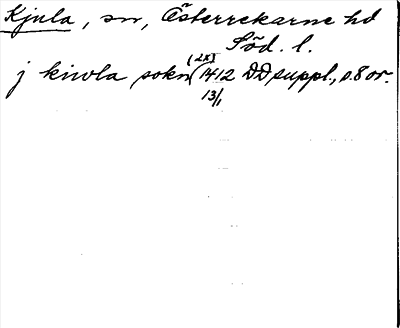 Kjula, sn, Österrekarne hd
Söd. l.
j kiwla sokn (2x) 1412 DD suppl., s. 8 or.
13/1